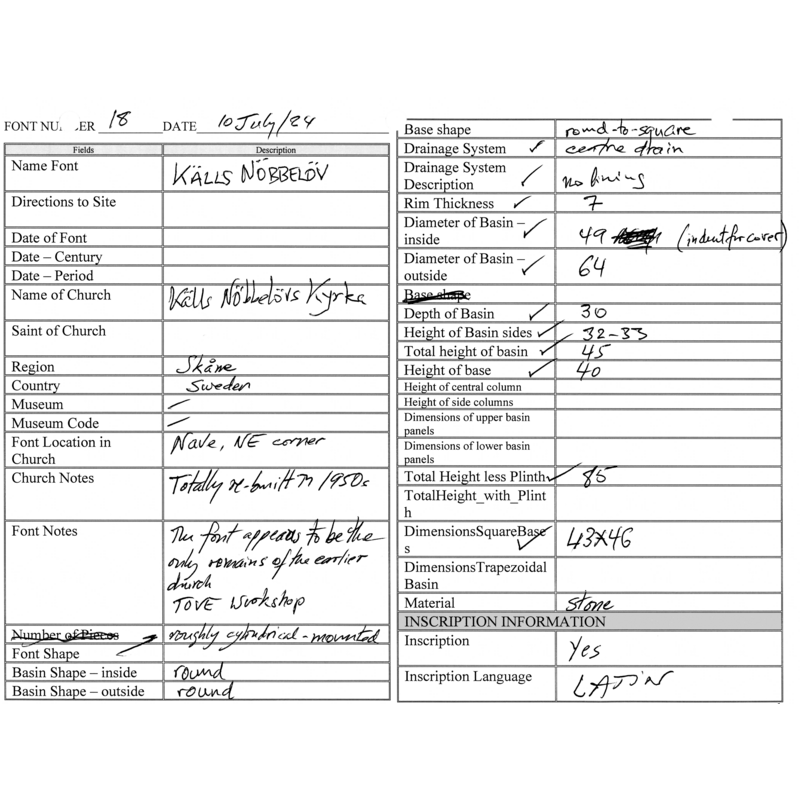 FONT NU ER 18 DATE 10 July/24
Fields Description
Name Font KÄLLS NÖBBELÖV
Directions to Site
Date of Font
Date – Century
Date – Period
Name of Church Källs Nöbbelövs Kyrka
Saint of Church
Region Skåne
Country Sweden
Museum –
Museum Code –
Font Location in Church Nave, NE corner
Church Notes Totally re-built in 1950s
Font Notes The font appears to be the
only remains of the earlier
church
TOVE Workshop
Number of Pieces
Font Shape roughly cylindrical - mounted
Basin Shape – inside round
Basin Shape – outside round
Base shape round-to-square
Drainage System ✓ centre drain
Drainage System
Description ✓ no lining
Rim Thickness ✓ 7
Diameter of Basin –
inside ✓ 49 (indent for cover)
Diameter of Basin –
outside ✓ 64
Base shape
Depth of Basin ✓ 30
Height of Basin sides ✓ 32-33
Total height of basin ✓ 45
Height of base ✓ 40
Height of central column
Height of side columns
Dimensions of upper basin
panels
Dimensions of lower basin
panels
Total Height less Plinth ✓ 85
TotalHeight_with_Plint
h
DimensionsSquareBase
s ✓ 43x46
DimensionsTrapezoidal
Basin
Material stone
INSCRIPTION INFORMATION
Inscription Yes
Inscription Language LATIN